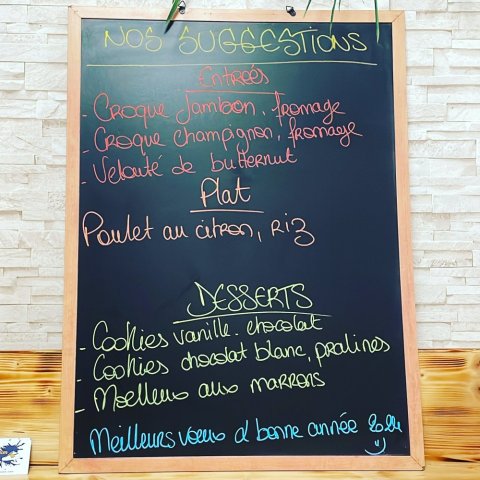 NOS SUGGESTIONS
Entrées
- Croque Jambon, fromage
- Croque champignon, fromage
- Velouté de butternut
Plat
Poulet au citron, Riz
DESSERTS
- Cookies vanille. chocolat
- Cookies chocolat blanc, pralinés
- Moelleux aux marrons
Meilleurs voeux & bonne année 2024